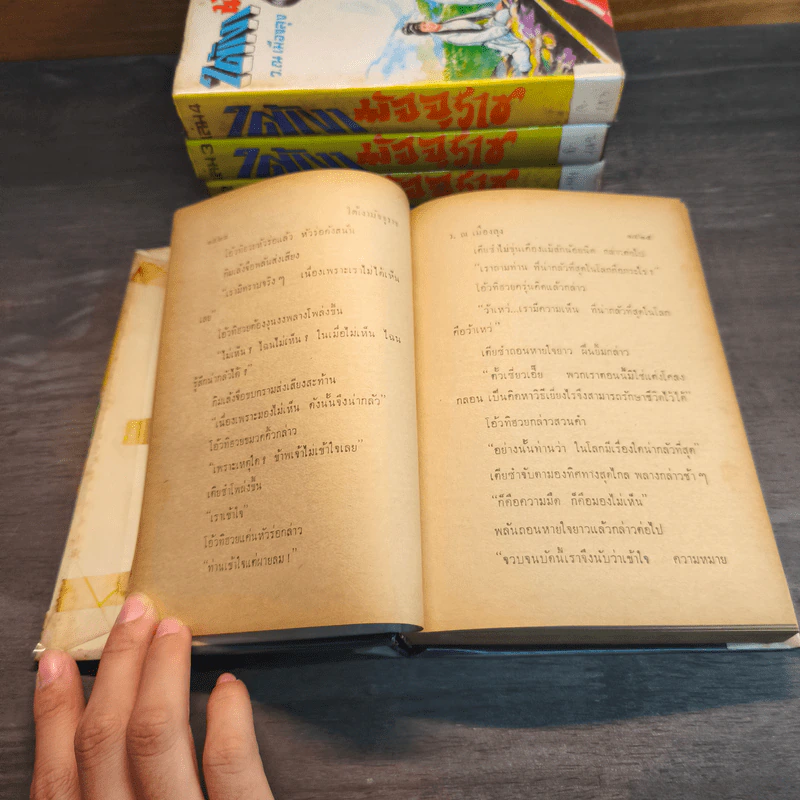 ใต้เงา
ว.ณ เมืองลุง
ใต้เงามัจจุราช
เล่ม 4
ใต้เงามัจจุราช
เล่ม 3
ใต้เงามัจจุราช
โอ้วทิฮวยหัวร่อแล้ว หัวร่อดังสนั่น
คิมเล้งจือพลันส่งเสียง
"เรามีคราบจริงๆ เนื่องเพราะเราไม่ได้เห็น
เลย"
โอ้วทิฮวยต้องงุนงงพลางโพล่งขึ้น
"ไม่เห็น ! ไฉนไม่เห็น ! ในเมื่อไม่เห็น ไฉน
รู้สึกน่ากลัวได้ !"
คิมเล้งจือรบกรามส่งเสียงสะท้าน
"เนื่องเพราะมองไม่เห็น ดังนั้นจึงน่ากลัว"
โอ้วทิฮวยขมวดคิ้วกล่าว
"เพราะเหตุใด ! ข้าพเจ้าไม่เข้าใจเลย"
เตียซำโพล่งขึ้น
"เราเข้าใจ"
โอ้วทิฮวยแค่นหัวร่อกล่าว
"ท่านเข้าใจแต่ผายลม !"
ว. ณ เมืองลุง
"เราถามท่าน ที่น่ากลัวที่สุดในโลกคือภายไร !"
โอ้วทิฮวยครุ่นคิดแล้วกล่าว
"ว้าเหว่...เรามีความเห็น ที่น่ากลัวที่สุดในโลก
คือว้าเหว่"
เตียซำถอนหายใจยาว ฝืนยิ้มกล่าว
"ตั้วเซียวเอี๊ย พวกเราตอนนี้มิใช่แต่งโคลง
กลอน เป็นคิดหาวิธีเยี่ยงไรจึงสามารถรักษาชีวิตไว้ได้"
โอ้วทิฮวยกล่าวสวนคำ
"อย่างนั้นท่านว่า ในโลกมีเรื่องใดน่ากลัวที่สุด"
เตียซำจับตามองทิศทางสุดไกล พลางกล่าวช้าๆ
"ก็คือความมืด ก็คือมองไม่เห็น"
พลันถอนหายใจยาวแล้วกล่าวต่อไป
"จวบจนบัดนี้เราจึงนับว่าเข้าใจ ความหมาย